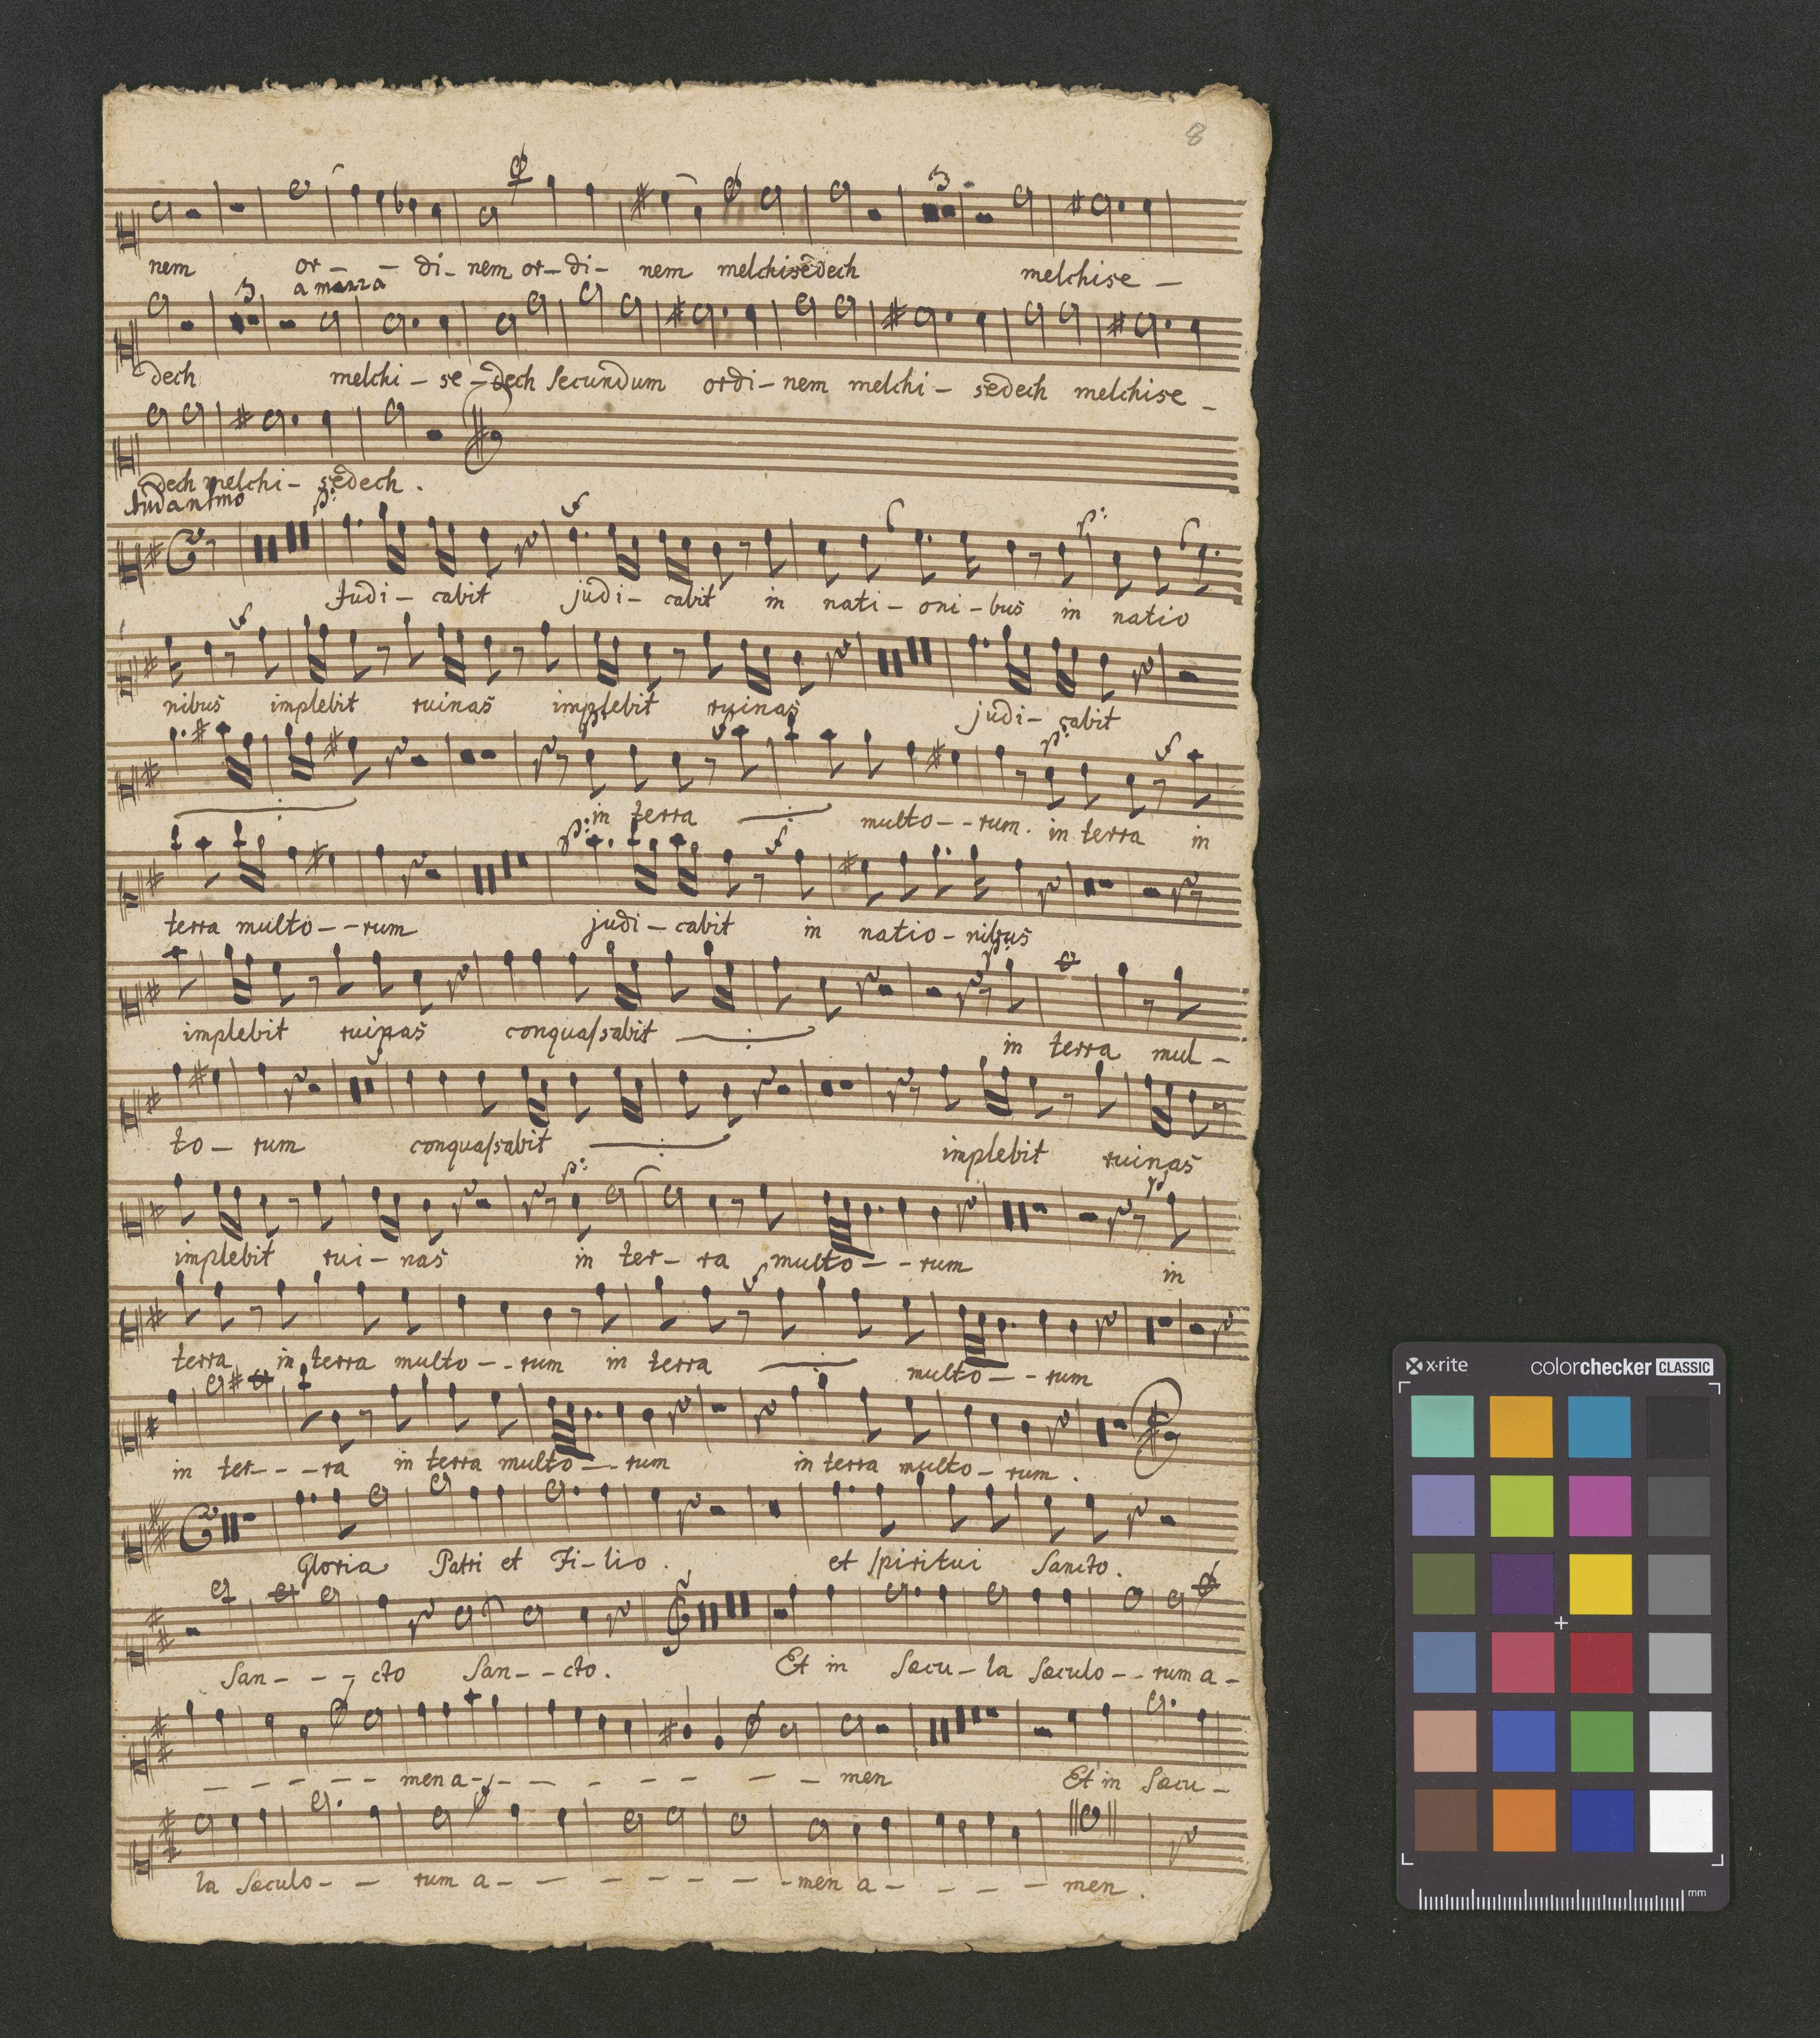 8
3
nem or - - di - nem or - di - nem melchisedech melchise -
3 a mezza
dech melchi - se - dech secundum ordi - nem melchi - sedech melchise -
dech melchi - sedech.
And.an.mo p:
f p:
Judi - cabit judi - cabit in nati - oni - bus in natio
f
nibus implebit ruinas implebit ruinas judi - cabit
p: f p: f
in terra multo - - rum. in terra in
p: f
terra multo - - rum judi - cabit in natio - nibus
p:
implebit ruinas conquassabit in terra mul -
f
to - rum conquassabit implebit ruinas
p:
implebit rui - nas in ter - ra multo - - rum in
f
terra in terra multo - - rum in terra multo - - rum
in ter - - - ra in terra multo - - rum in terra multo - rum.
Gloria Patri et Fi - lio. et spiritui Sancto.
San - - - cto San - - cto. Et in sæcu - la sæculo - - rum a -
- - - - - - men a - - - - - - - men Et in sæcu -
la sæculo - - rum a - - - - - - - men a - - - - men.
x-rite colorchecker CLASSIC
mm